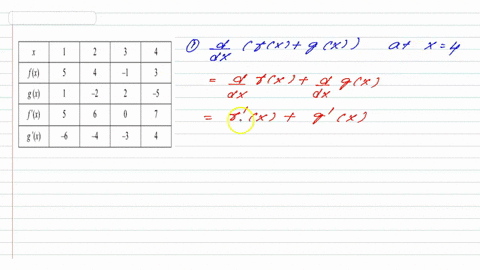 x 1 2 3 4
f(x) 5 4 –1 3
g(x) 1 –2 2 –5
f'(x) 5 6 0 7
g'(x) –6 –4 –3 4
① d/dx (f(x) + g(x)) at x=4
= d/dx f(x) + d/dx g(x)
= f'(x) + g'(x)